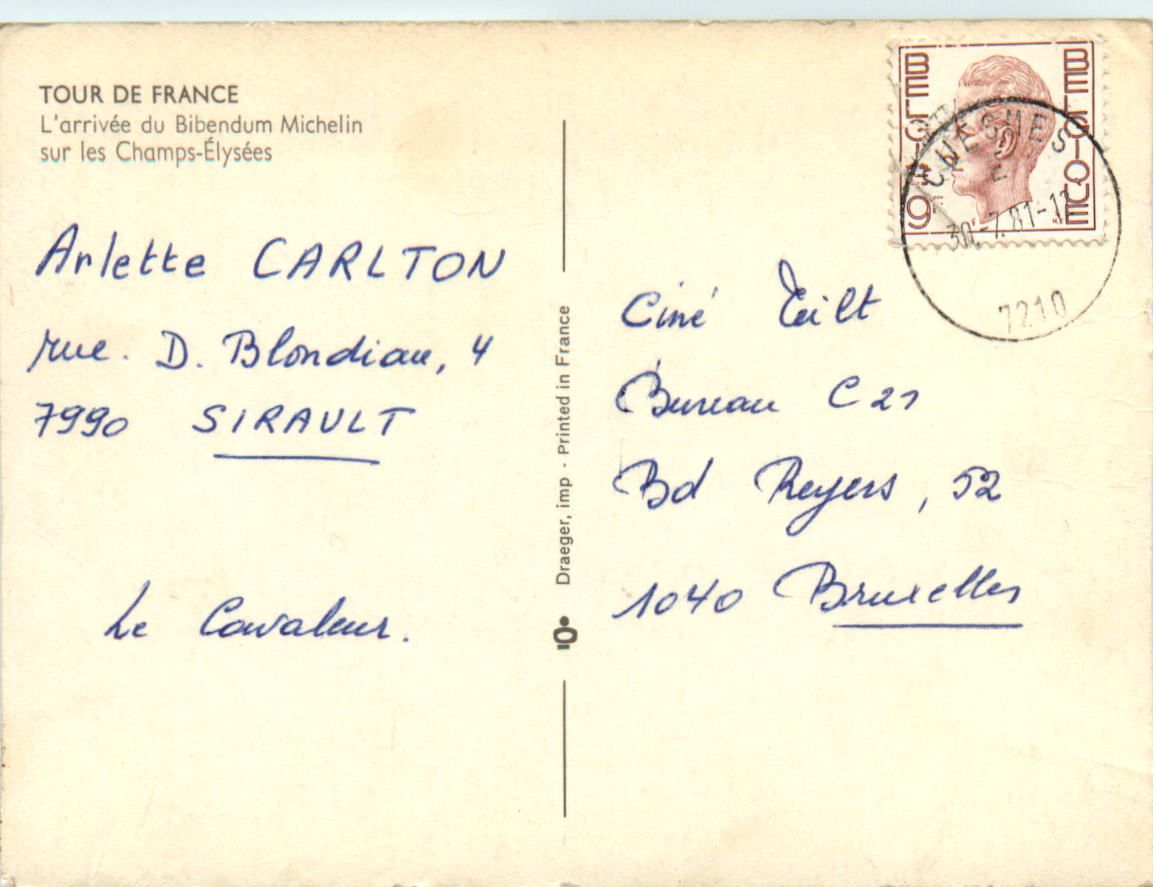 TOUR DE FRANCE
L'arrivée du Bibendum Michelin
sur les Champs-Élysées
Arlette CARLTON
rue. D. Blondiau, 4
7990 SIRAULT
Le Cavaleur.
Draeger, imp - Printed in France
BELGIQUE
BELGIE
9F
CUESMES
30.-7.81-1
7210
Ciné
Bureau C21
Bd Reyers, 52
1040 Bruxelles